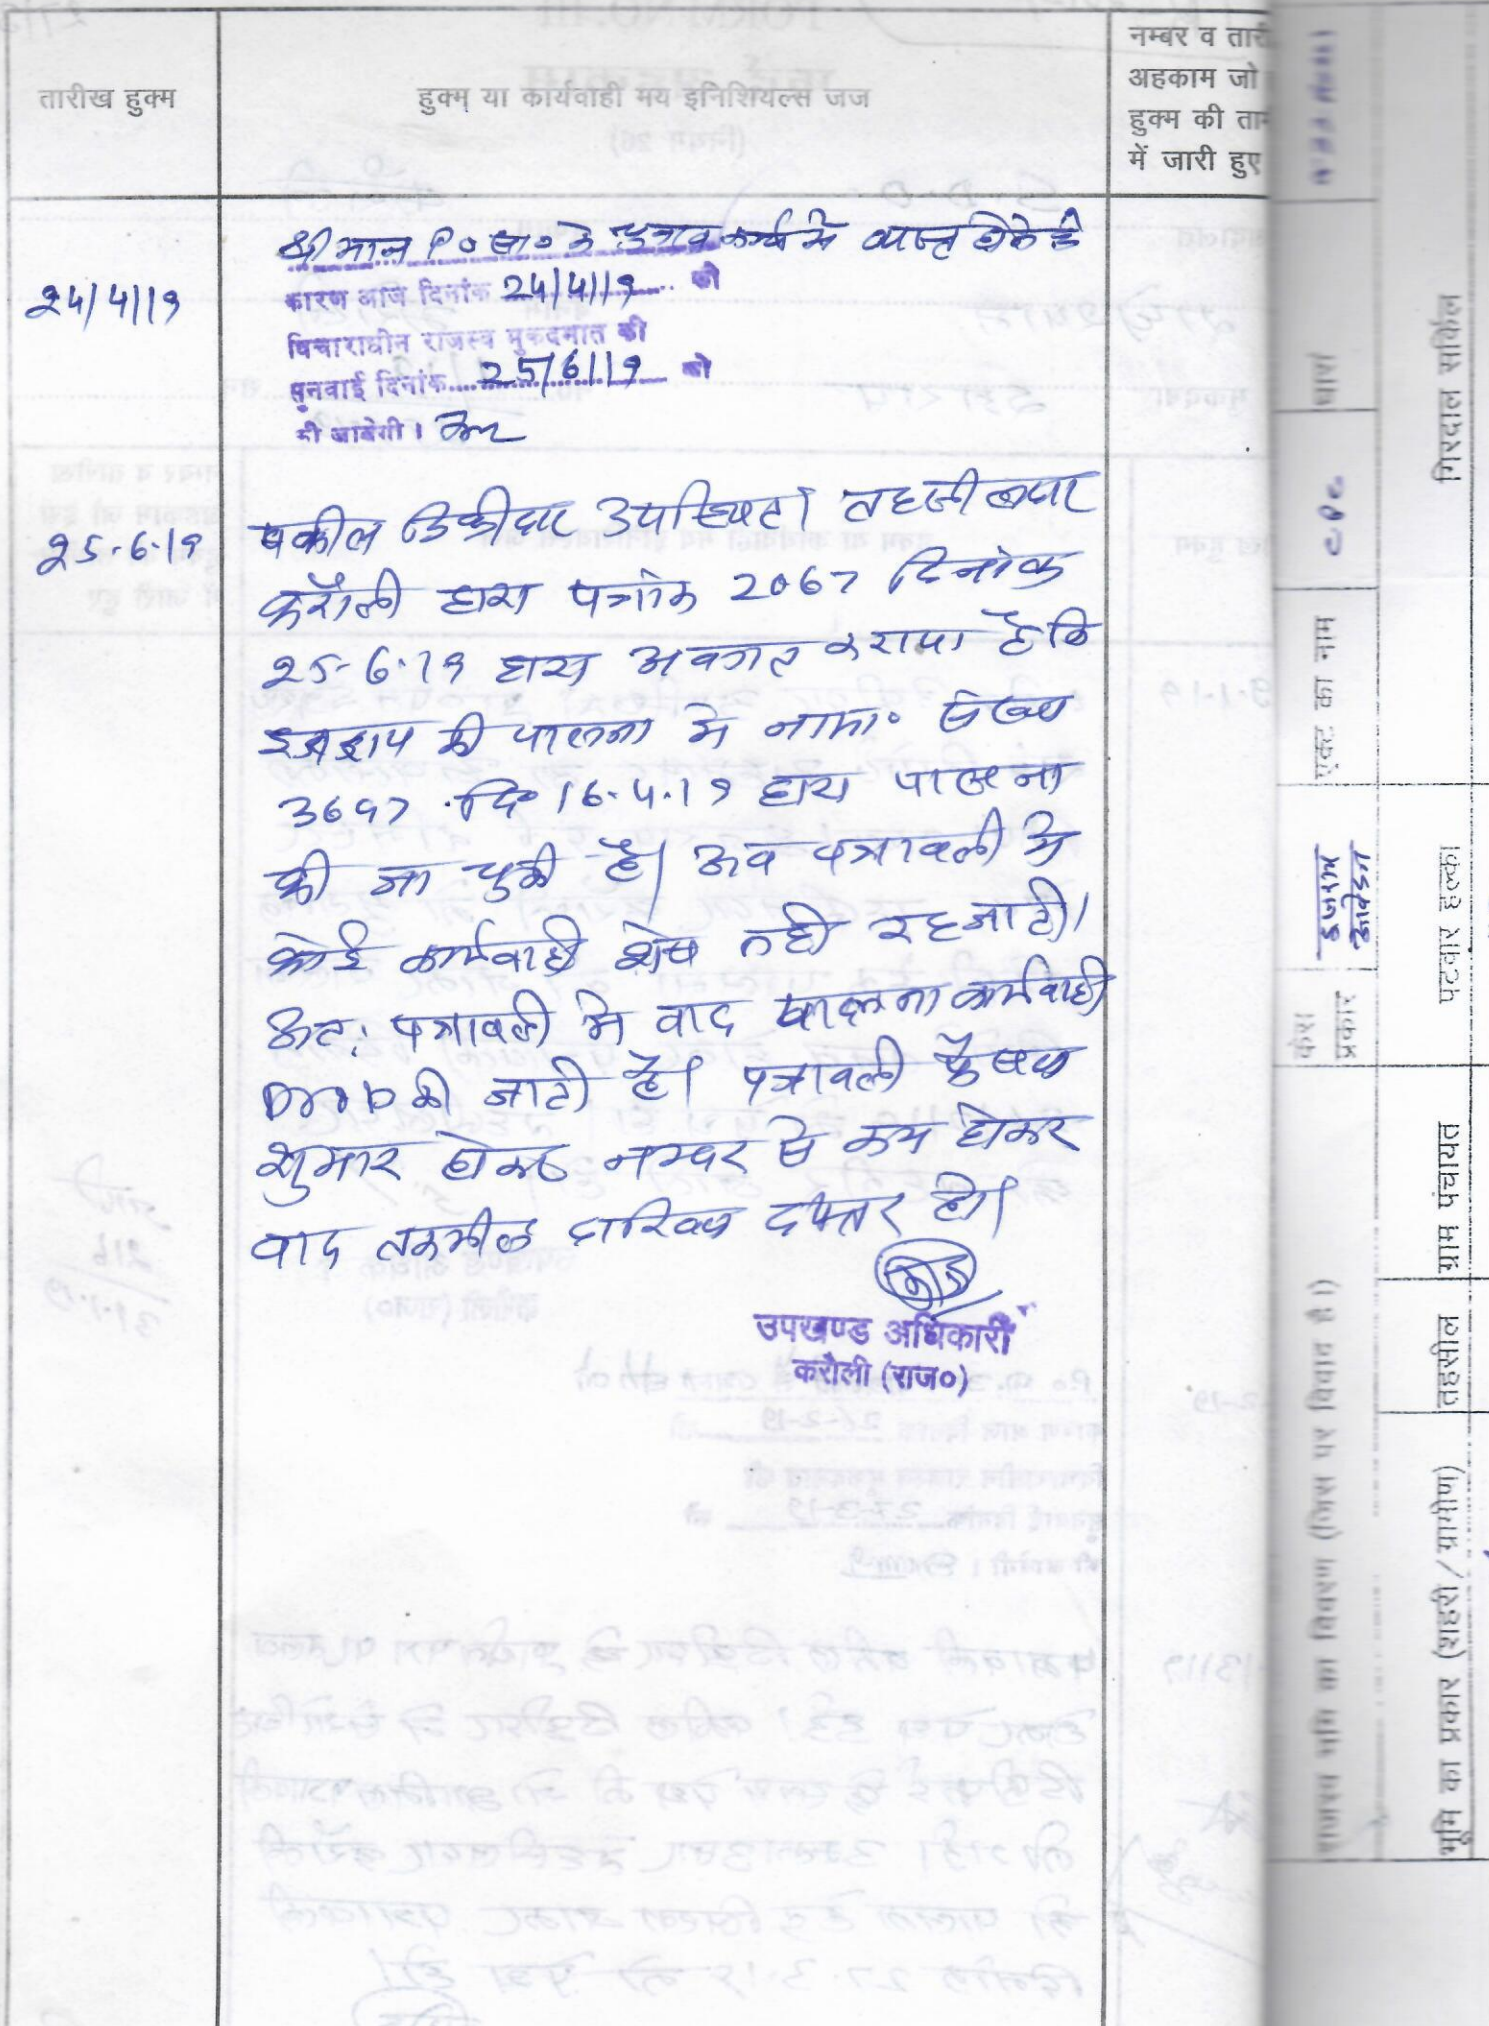 तारीख हुक्म
हुक्म् या कार्यवाही मय इनिशियल्स जज
नम्बर व तारी
अहकाम जो
हुक्म की ताम
में जारी हुए
24/4/19
श्रीमान P०सा० के चुनाव कार्य मे व्यस्त होने के
कारण आज दिनांक 24/4/19 को
विचाराधीन राजस्व मुकदमात की
सुनवाई दिनांक 25/6/19 को
की जावेगी।
25-6-19
वकील डिक्रीदार उपस्थित। तहसीलदार
करौली द्वारा पत्रांक 2067 दिनांक
25-6-19 द्वारा अवगत कराया है कि
इजराय की पालना मे नामा० संख्या
3697 दि० 16-4-19 द्वारा पालना
की जा चुकी है। अब पत्रावली मे
कोई कार्यवाही शेष नही रह जाती।
अत: पत्रावली मे वाद पालना कार्यवाही
Drop की जाती है। पत्रावली फैसल
शुमार होकर नम्बर से कम होकर
वाद तकमील दाखिल दफ्तर हो।
उपखण्ड अधिकारी
करौली (राज०)
गिरदाल सर्किल
पटवार हल्का
ग्राम पंचायत
तहसील
भूमि का प्रकार (शहरी / ग्रामीण)
धारा
CPC
एक्ट का नाम
इजराय
आवेदन
केस
प्रकार
राजस्व भूमि का विवरण (जिस पर विवाद है।)